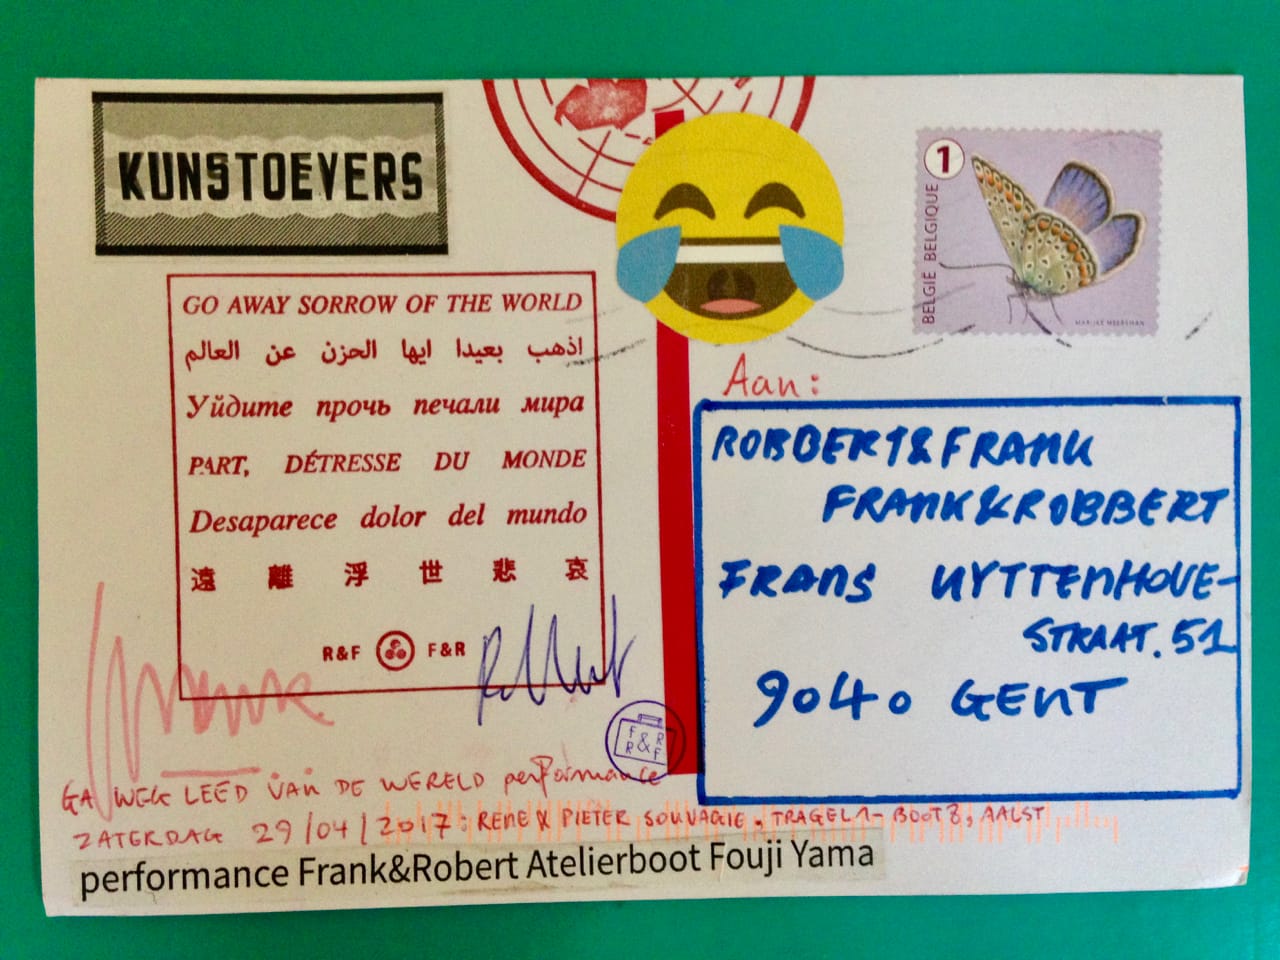 KUNSTOEVERS
1
BELGIË BELGIQUE
MARIJKE MEERSMAN
GO AWAY SORROW OF THE WORLD
اذهب بعيدا ايها الحزن عن العالم
Уйдите прочь печали мира
PART, DÉTRESSE DU MONDE
Desaparece dolor del mundo
遠離浮世悲哀
R&F F&R
Aan:
ROBBERT&FRANK
FRANK&ROBBERT
FRANS UYTTENHOVE-
STRAAT. 51
9040 GENT
F&R
R&F
GA WEG LEED VAN DE WERELD performance
ZATERDAG 29/04/2017: RENE & PIETER SOUVAGIE. TRAGEL 1-BOOT 8, AALST
performance Frank&Robert Atelierboot Fouji Yama